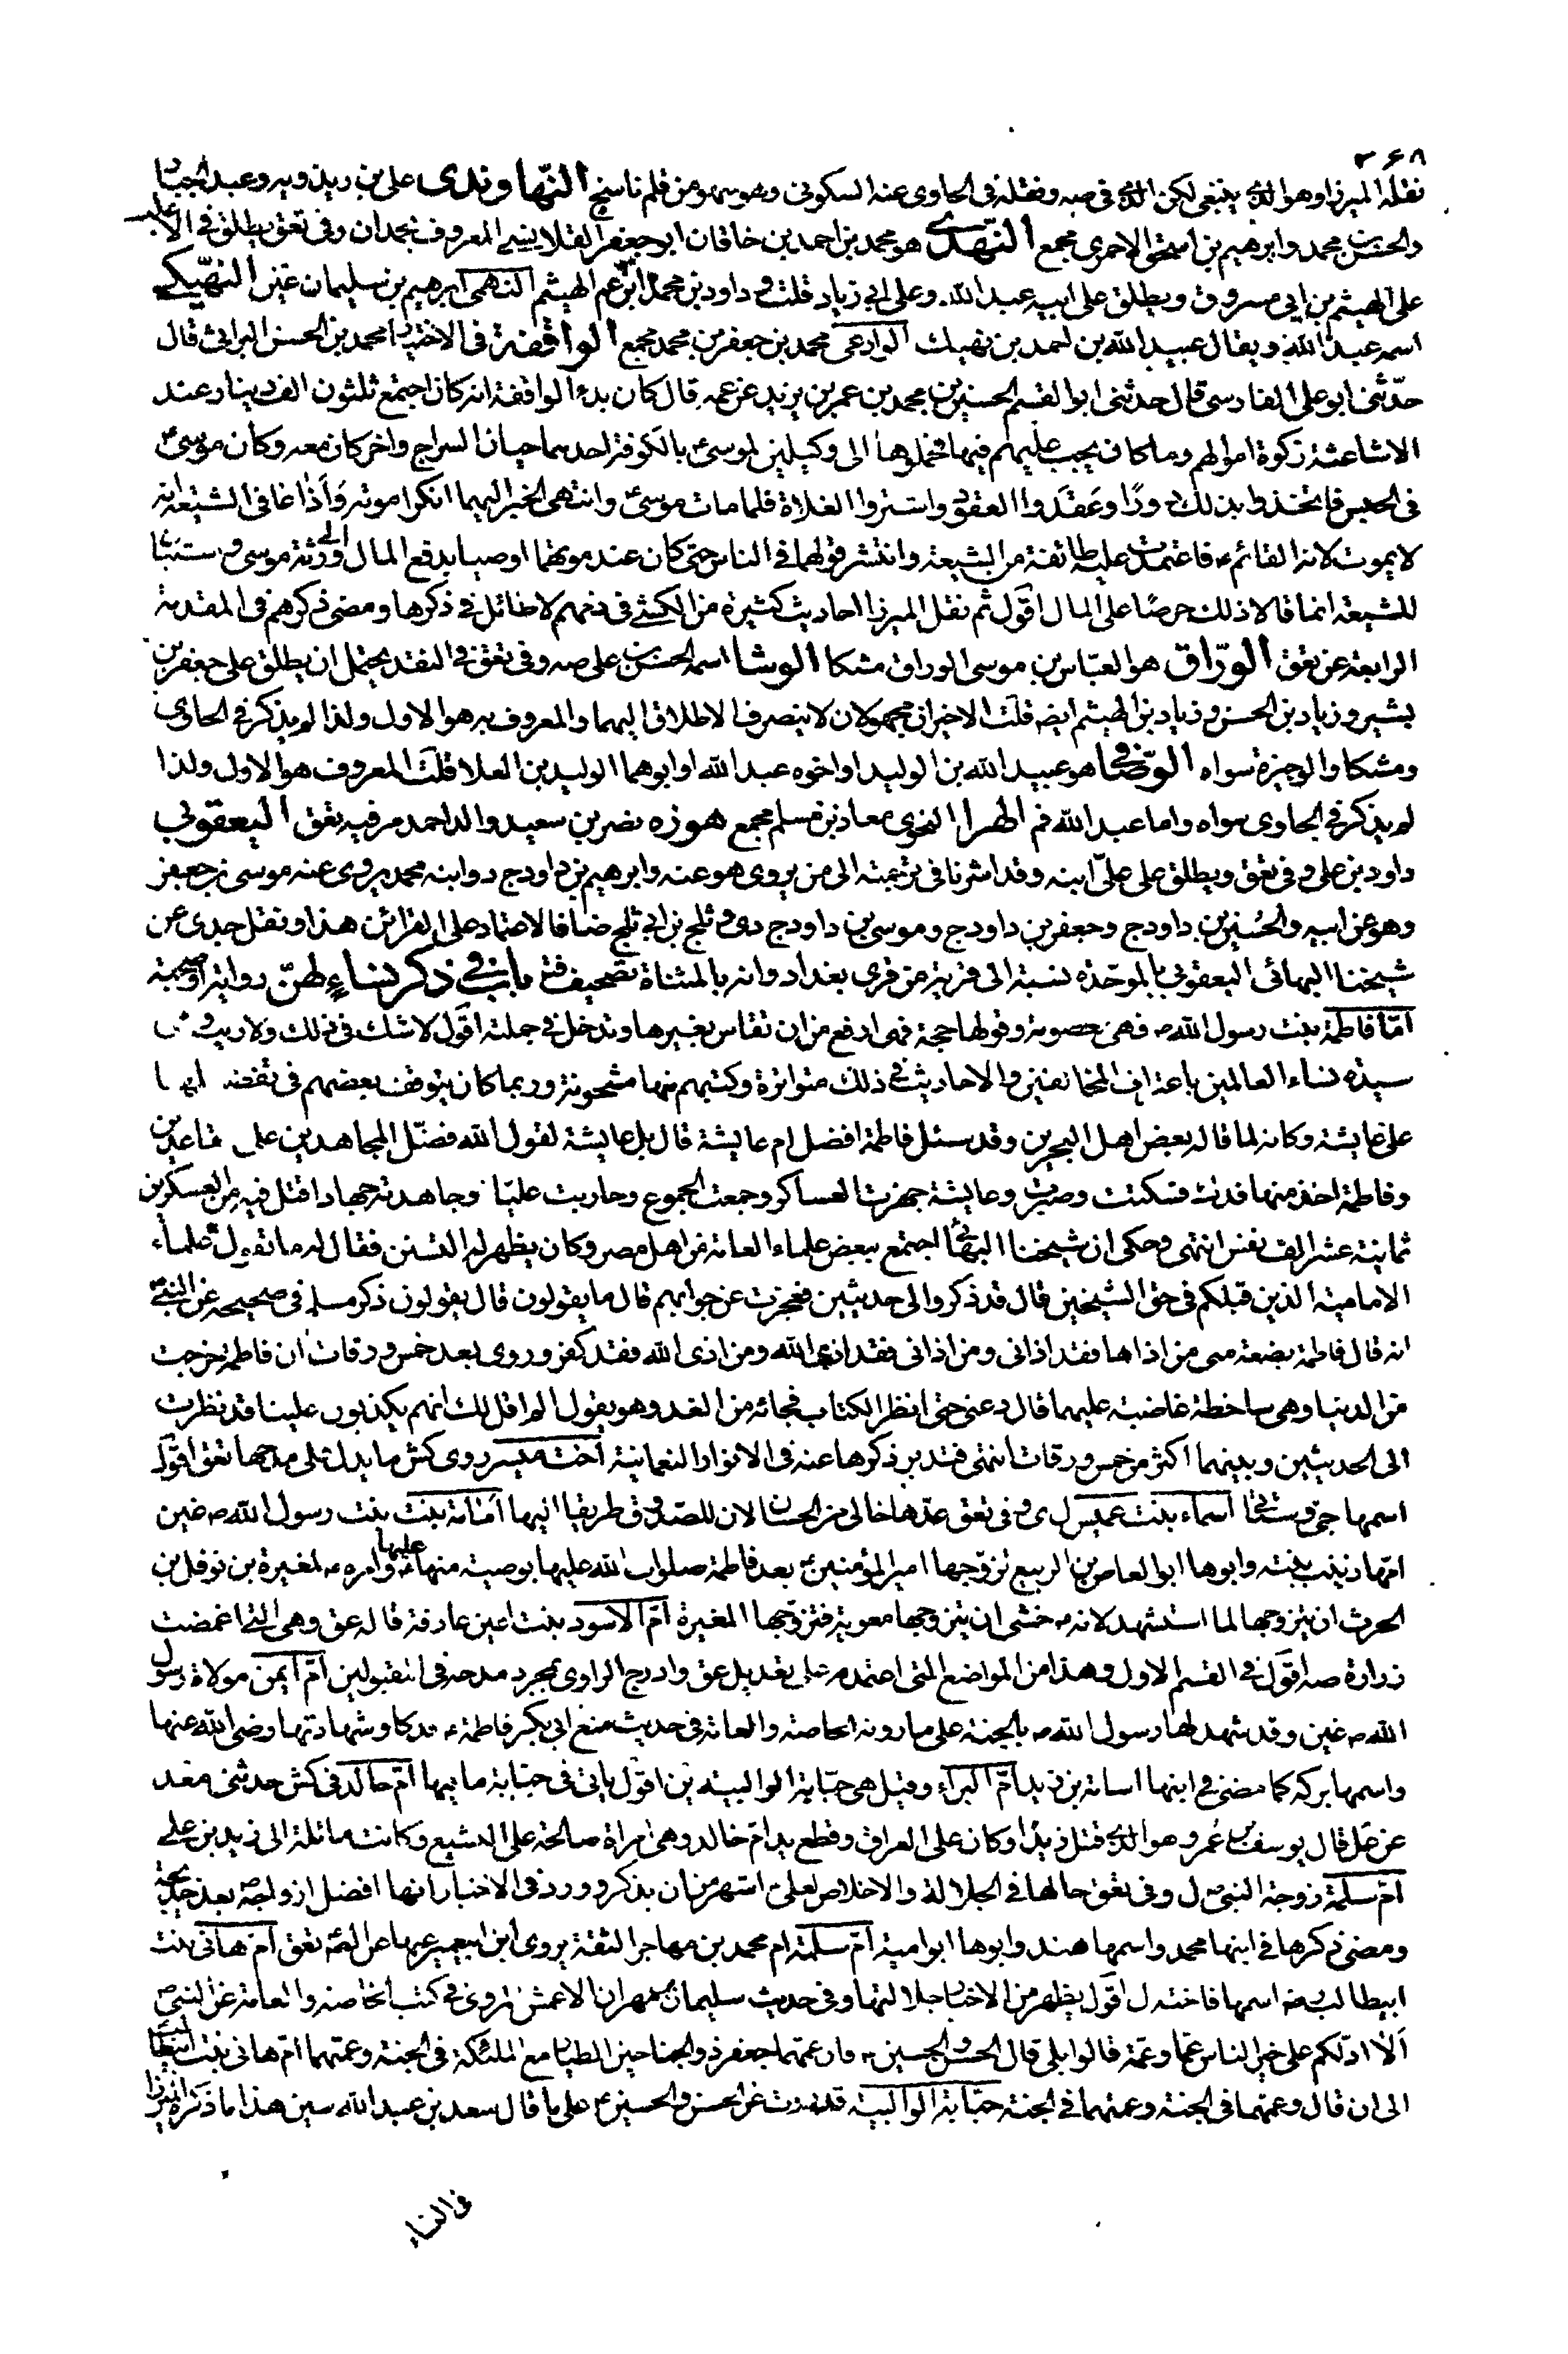 ٣٦٨
نقله الميرزا وهو الذي ينبغي لكن الذي في صه ونقله في الحاوي عنه السكوني وهو سهو من قلم ناسخ النهاوندي علي بن زيدويه وعبد الجبار
والحسن بن محمد وابرهيم بن اسحق الاحمري مجمع النهدي هو محمد بن احمد بن خاقان ابو جعفر القلانسي المعروف بحمدان وفي تعق يطلق في الاغلب
على الهيثم بن ابي مسروق ويطلق على ابيه عبد الله وعلى ابي زياد قلت و داود بن محمد ابن عم الهيثم النهمي ابرهيم بن سليمان عين النهيكي
اسمه عبد الله ويقال عبيد الله بن احمد بن نهيك الوادعي محمد بن جعفر بن محمد مجمع الواقفة في الاختيار محمد بن الحسن البراثي قال
حدثني ابو علي الفارسي قال حدثني ابو القسم الحسين بن محمد بن عمر بن يزيد عن عمه قال كان بدء الواقفة انه كان اجتمع ثلثون الف دينار عند
الاشاعثة زكوة اموالهم وما كان يجب عليهم فيها فحملوها الى وكيلين لموسى ع بالكوفة احدهما حيان السراج واخر كان معه وكان موسى ع
في الحبس فاتخذوا بذلك دورا وعقدوا العقود واشتروا الغلاة فلما مات موسى ع وانتهى الخبر اليهما انكرا موته واذاعا في الشيعة انه
لا يموت لانه القائم ع فاعتمدت عليه طائفة من الشيعة وانتشر قولهما في الناس حتى كان عند موتهما اوصيا بدفع المال الى ورثة موسى ع واستبان
للشيعة انما قالا ذلك حرصا على المال اقول ثم نقل الميرزا احاديث كثيرة من الكشي في ذمهم لا طائل في ذكرها ومضى ذكرهم في المقدمة
الرابعة عن تعق الوراق هو العباس بن موسى الوراق مشكا الوشا اسمه الحسن بن علي صه وفي تعق في النقد يحتمل ان يطلق على جعفر بن
بشير و زياد بن الحسن و زياد بن الهيثم ايضا قلت الاخيران مجهولان لا ينصرف الاطلاق اليهما والمعروف به هو الاول ولذا لم يذكر في الحاوي
ومشكا والوجيزة سواه الوصافي هو عبيد الله بن الوليد او اخوه عبد الله او ابوهما الوليد بن العلا قلت المعروف هو الاول ولذا
لم يذكر في الحاوي سواه واما عبد الله فم الهرا النحوي معاذ بن مسلم مجمع هوزه نضر بن سعيد والد احمد مر فيه تعق اليعقوبي
داود بن علي و في تعق ويطلق على علي ابنه وقد اشرنا في ترجمته الى من يروي هو عنه وابرهيم بن داود ج د وابنه محمد يروي عنه موسى بن جعفر
وهو عن ابيه والحسين بن داود ج وجعفر بن داود ج وموسى بن داود ج دي و ثلج بن ابي ثلج ضا فالاعتماد على القرائن هذا ونقل جدي عن
شيخنا البهائي البعقوبي بالموحدة نسبة الى قرية من قرى بغداد وانه بالمثناة تصحيف فتد باب في ذكر نساء لهن رواية او صحبة
اما فاطمة بنت رسول الله ص فهي معصومة وقولها حجة فهي ارفع من ان تقاس بغيرها وتدخل في جملته اقول لا شك في ذلك ولا ريب و هي
سيدة نساء العالمين باعتراف المخالفين والاحاديث في ذلك متواترة وكتبهم منها مشحونة وربما كان يتوقف بعضهم في تفضيلها
على عايشة وكانه لما قاله بعض اهل البحرين وقد سئل فاطمة افضل ام عايشة قال بل عايشة لقول الله فضل المجاهدين على القاعدين
وفاطمة اخذ منها فدك فسكتت وصبرت وعايشة جهزت العساكر وجمعت الجموع وحاربت عليا وجاهدته جهادا قتل فيه من العسكرين
ثمانية عشر الف نفس انتهى وحكى ان شيخنا البهائي اجتمع ببعض علماء العامة من اهل مصر وكان يظهر له التسنن فقال له ما تقول علماء
الامامية الذين قبلكم في حق الشيخين قال قد ذكروا لي حديثين فعجزت عن جوابهم قال ما يقولون قال يقولون ذكر مسلم في صحيحه عن النبي ص
انه قال فاطمة بضعة مني من اذاها فقد اذاني ومن اذاني فقد اذى الله ومن اذى الله فقد كفر وروى بعد خمس ورقات ان فاطمة خرجت
من الدنيا وهي ساخطة غاضبة عليهما قال دعني حتى انظر الكتاب فجائه من الغد وهو يقول الم اقل لك انهم يكذبون علينا قد نظرت
الى الحديثين وبينهما اكثر من خمس ورقات انتهى فتدبر ذكرها عنه في الانوار النعمانية اخت ميسر روى كش ما يدل على مدحها تعق اقول
اسمها حبى وستاتي اسماء بنت عميس ل ي و في تعق عدها خالي من الحسان لان للصدوق طريقا اليها امامة بنت بنت رسول الله ص فين
امها زينب بنته وابوها ابو العاص بن الربيع تزوجها امير المؤمنين ع بعد فاطمة صلوات الله عليها بوصية منها عليها ع وامره ع لمغيرة بن نوفل بن
الحرث ان يتزوجها لما استشهد لانه ع خشى ان يتزوجها معوية فتزوجها المغيرة ام الاسود بنت اعين عارفة قاله عق وهي التي اغمضت
زرارة صه اقول في القسم الاول وهذا من المواضع التي اعتمد مر على تعديل عق وادرج الراوي بمجرد مدحه في المقبولين ام ايمن مولاة رسول
الله ص غين وقد شهد لها رسول الله ص بالجنة على ما روته الخاصة والعامة في حديث منع ابي بكر فاطمة ع فدكا وشهادتها رضي الله عنها
واسمها بركة كما مضى في ابنها اسامة بن زيد ام البراء وقيل هي حبابة الوالبية ين اقول ياتي في حبابة ما فيها ام خالد في كش حدثني محمد
عن عل قال يوسف بن عمر وهو الذي قتل زيدا وكان على العراق وقطع يد ام خالد وهي امراة صالحة على التشيع وكانت مائلة الى زيد بن علي
ام سلمة زوجة النبي ص ل و في تعق حالها في الجلالة والاخلاص لعلي ع اشهر من ان يذكر وورد في الاخبار انها افضل ازواجه ص بعد خديجة
ومضى ذكرها في ابنها محمد واسمها هند وابوها ابو امية ام سلمة ام محمد بن مهاجر الثقة يروي ابن ابي عمير عنها عن الص ع تعق ام هاني بنت
ابيطالب رضه اسمها فاخته ل اقول يظهر من الاخبار جلالتها وفي حديث سليمان بن مهران الاعمش المروي في كتب الخاصة والعامة عن النبي ص
الا ادلكم على خير الناس عما وعمة قالوا بلى قال الحسن والحسين ع فان عمهما جعفر ذو الجناحين الطيار مع الملئكة في الجنة وعمتهما ام هاني بنت ابيطالب
الى ان قال وعمهما في الجنة وعمتهما في الجنة حبابة الوالبية قد روت عن الحسن والحسين ع على ما قال سعد بن عبد الله سين هذا ما ذكره الميرزا
في النساء